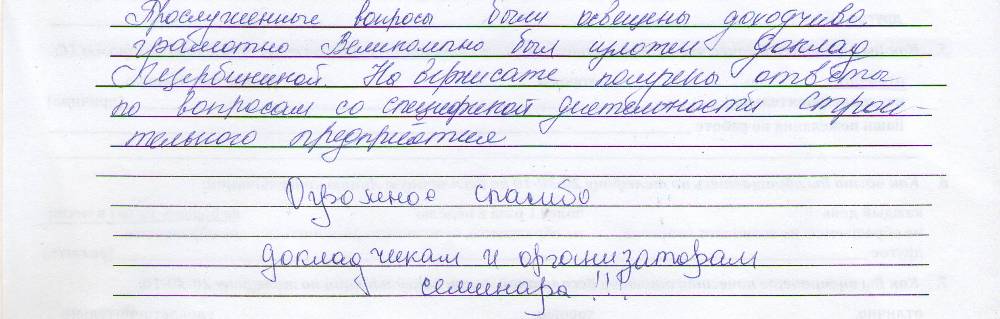 Прослушенные вопросы были освещены доходчиво,
грамотно Великолепно был изложен доклад
Пщербининой. На вернисаже получены ответы
по вопросам со спецификой деятельности строи-
тельного предприятия
Огромное спасибо
докладчикам и организаторам
семинара!!!